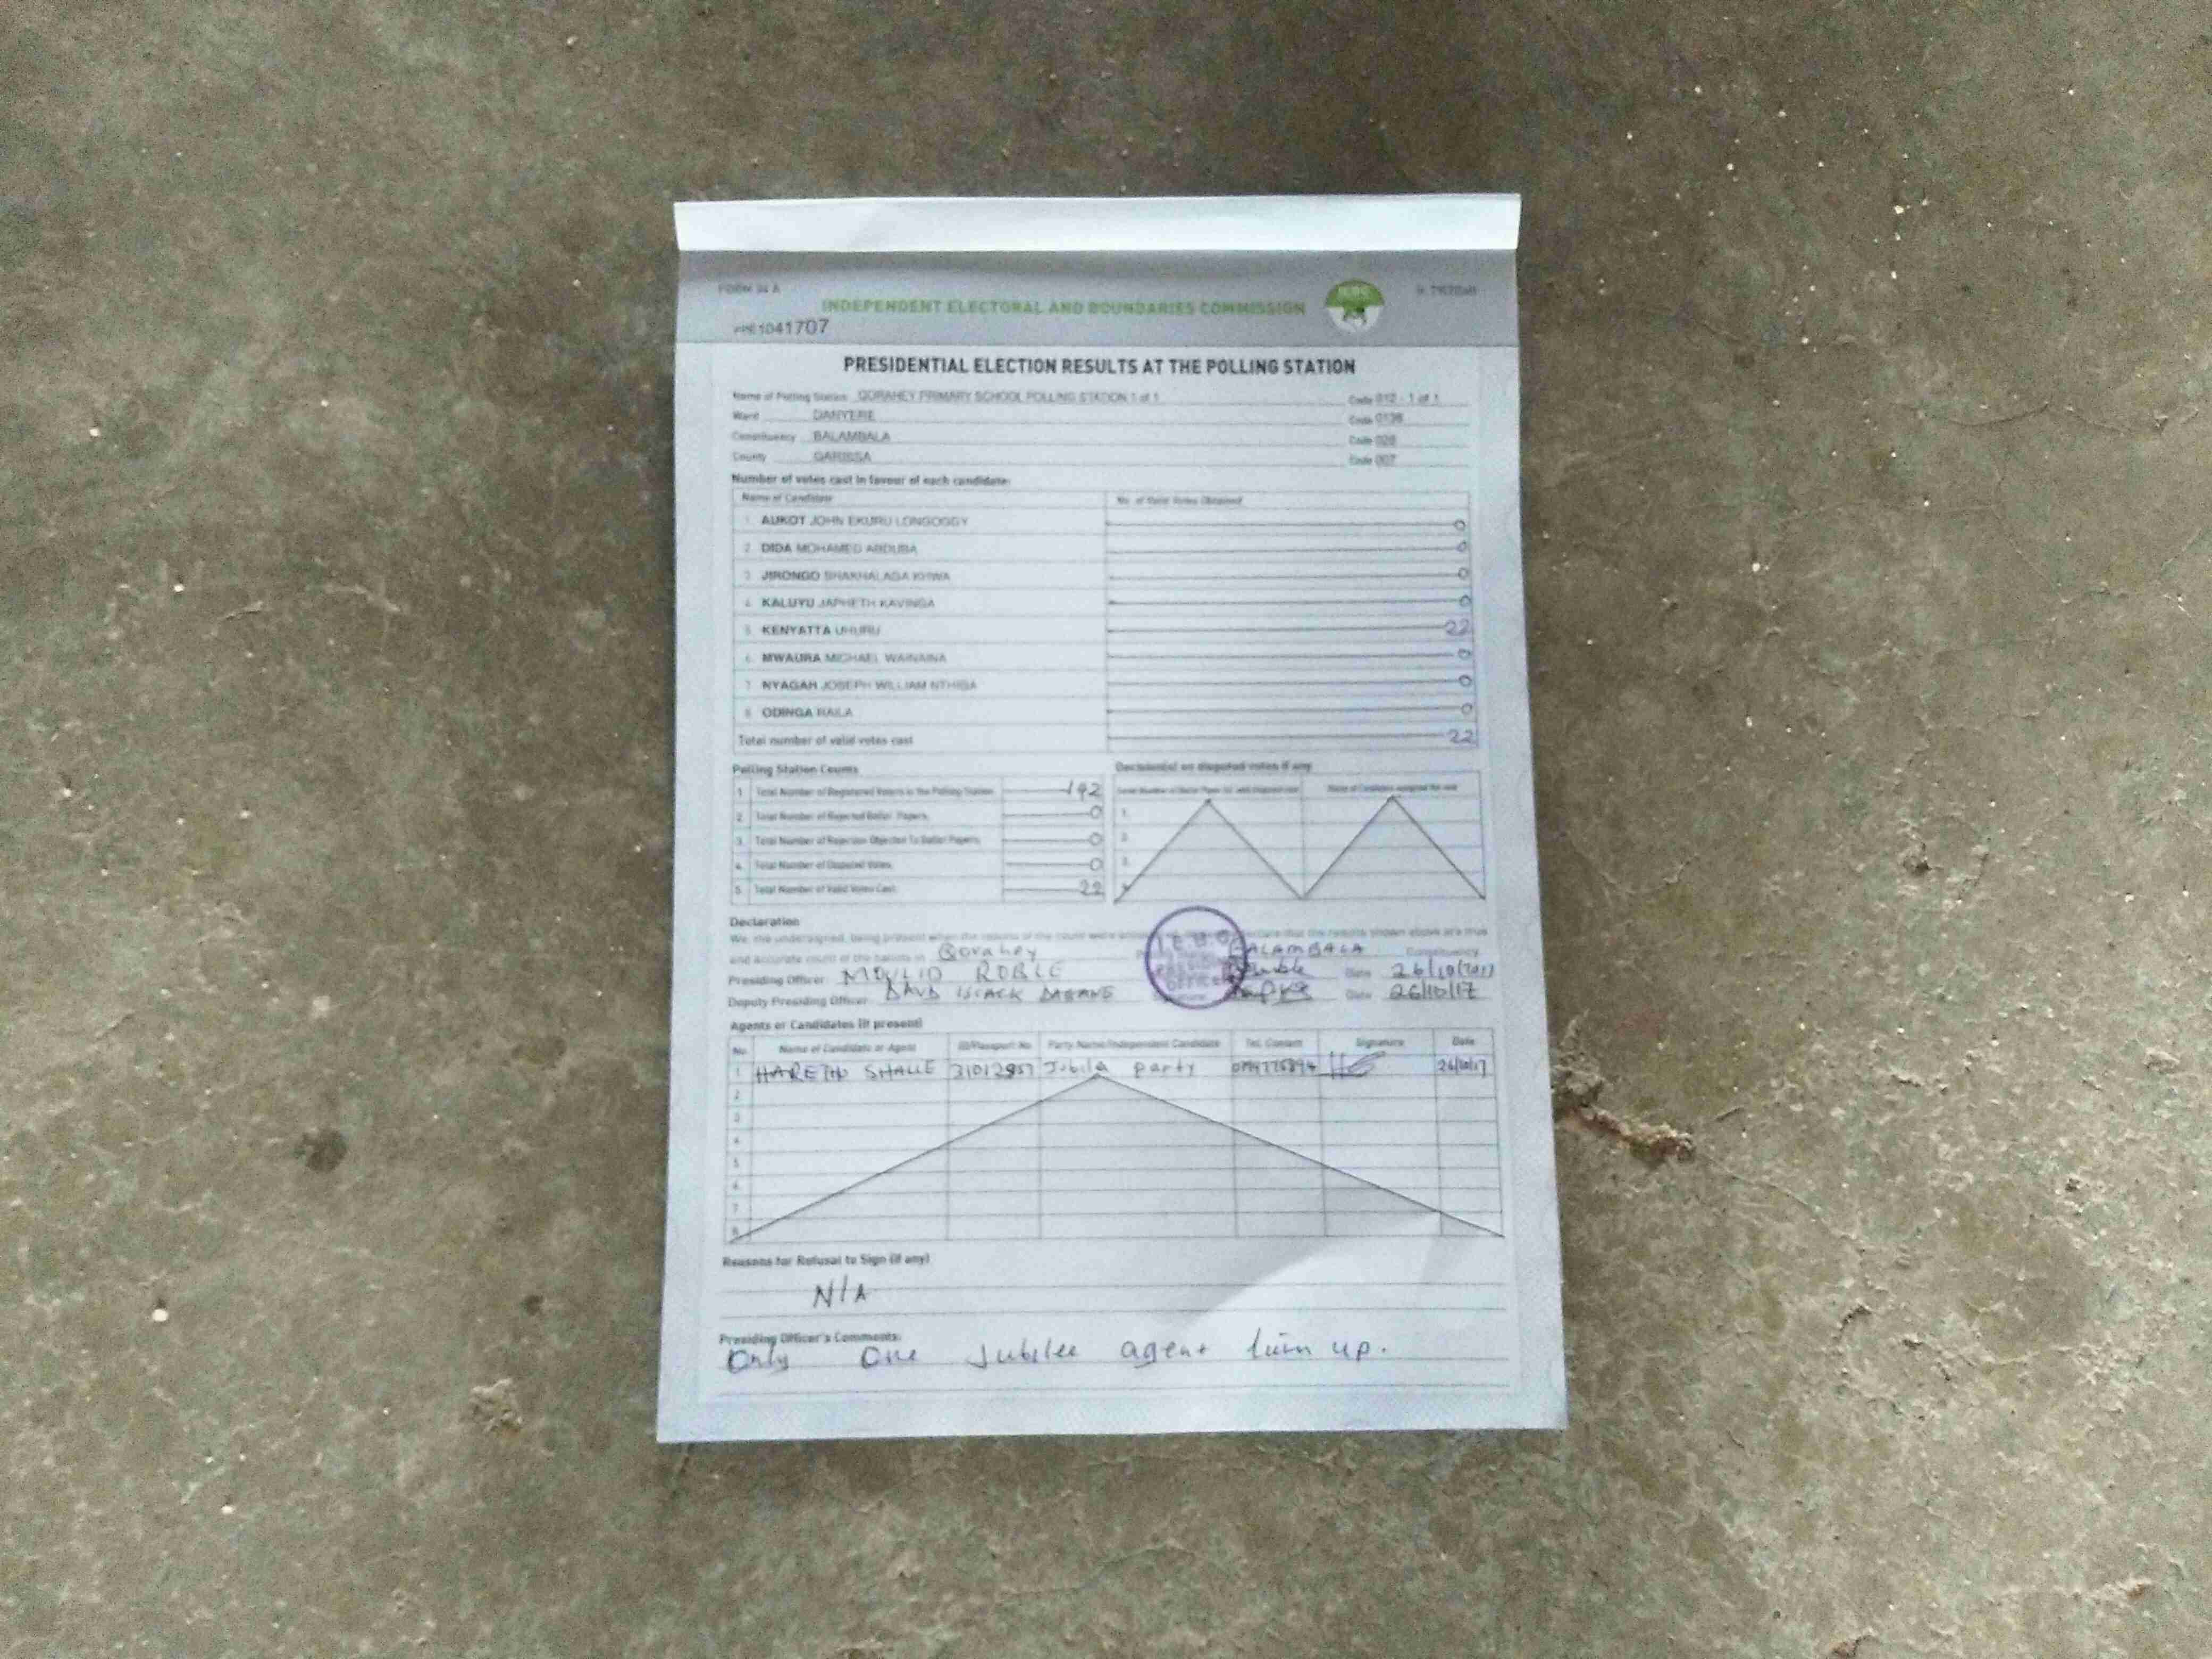 FORM 34 A
INDEPENDENT ELECTORAL AND BOUNDARIES COMMISSION
1041707
PRESIDENTIAL ELECTION RESULTS AT THE POLLING STATION
Name of Polling Station QORAHEY PRIMARY SCHOOL POLLING STATION 1 of 1 Code 012 - 1 of 1
Ward DANYERE Code 0138
Constituency BALAMBALA Code 028
County GARISSA Code 007
Number of votes cast in favour of each candidate:
Name of Candidate No. of Valid Votes Obtained
1. AUKOT JOHN EKURU LONGOGGY 0
2. DIDA MOHAMED ABDUBA 0
3. JIRONGO SHAKHALAGA KHWA 0
4. KALUYU JAPHETH KAVINGA 0
5. KENYATTA UHURU 22
6. MWAURA MICHAEL WAINAINA 0
7. NYAGAH JOSEPH WILLIAM NTHIGA 0
8. ODINGA RAILA 0
Total number of valid votes cast 22
Polling Station Counts Decision(s) on disputed votes if any
1 Total Number of Registered Voters in the Polling Station 192
2. Total Number of Rejected Ballot Papers 0
3. Total Number of Rejection Objected To Ballot Papers 0
4. Total Number of Disputed Votes 0
5. Total Number of Valid Votes Cast 22
Name of Candidate assigned the vote
1.
2.
3.
4
Declaration
We, the undersigned, being present when the results of the count were that the results shown above are a true
and accurate count of the ballots in Qorahey BALAMBALA Constituency
Presiding Officer: MOULID ROBLE Date 26/10/2017
Deputy Presiding Officer: ISSACK Date 26/10/17
I.E.B.C
OFFICER
Agents or Candidates (if present)
No. Name of Candidate or Agent ID/Passport No Party Name/Independent Candidate Tel. Contact Signature Date
1 SHALLE Jubila party 26/10/17
2
3
4
5
6
7
8
Reasons for Refusal to Sign (if any)
N/A
Presiding Officer's Comments:
Only One Jubilee agent turn up.